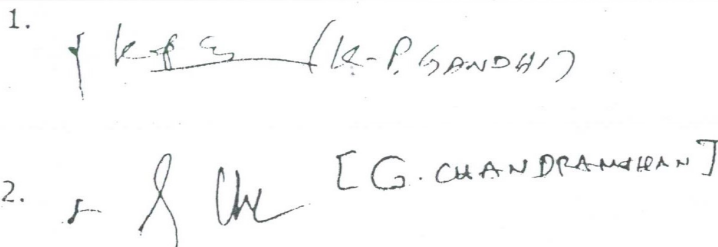 1. (K-P. GANDHI)
2. [G. CHANDRAMOHAN]